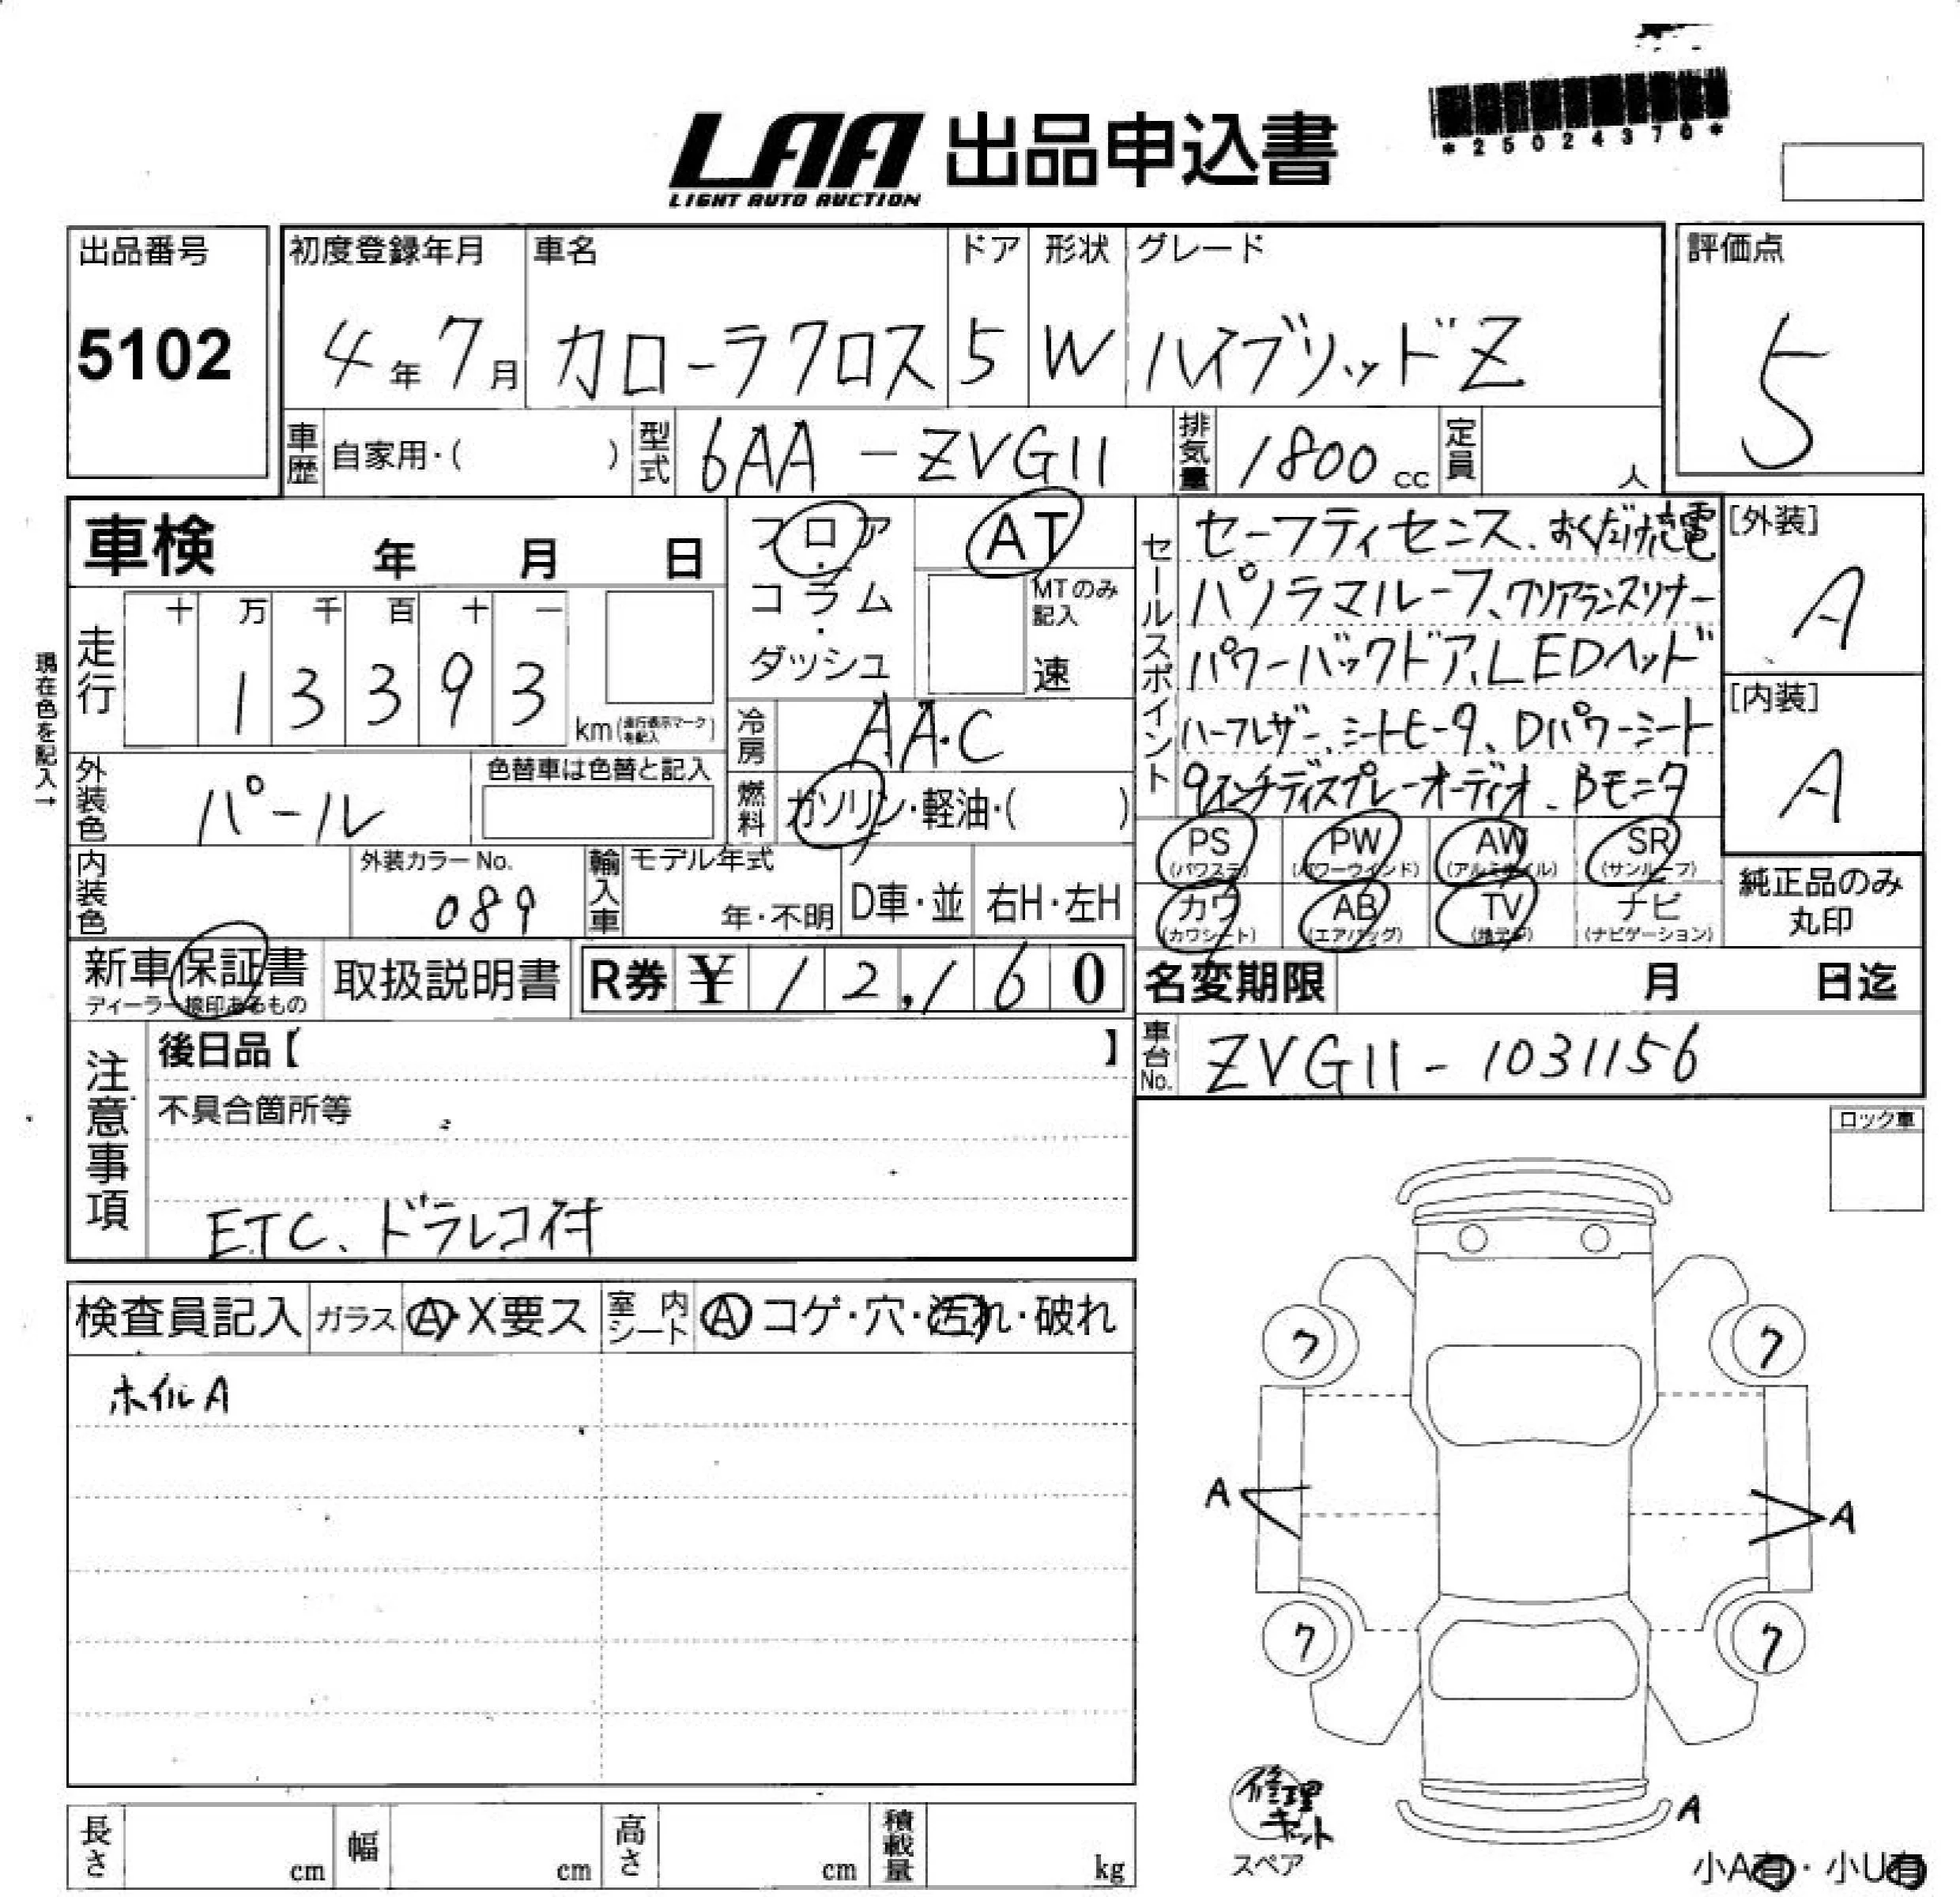 *25024370*
LAA 出品申込書
LIGHT AUTO AUCTION
出品番号
5102
初度登録年月
4年7月
車名
カローラクロス
ドア
5
形状
W
グレード
ハイブリッドZ
評価点
5
車歴 自家用・( )
型式 6AA-ZVG11
排気量 1800cc
定員 人
車検 年 月 日
フロア・コラム・ダッシュ
AT
MTのみ記入
速
セールスポイント
セーフティセンス、おくだけ充電
パノラマルーフ、クリアランスソナー
パワーバックドア、LEDヘッド
ハーフレザー、シートヒータ、Dパワーシート
9インチディスプレーオーディオ、Bモニタ
[外装]
A
[内装]
A
現在色を記入→
走行
十 万 千 百 十 一
1 3 3 9 3
km(走行表示マークを記入)
冷房 AA・C
燃料 ガソリン・軽油・( )
外装色 パール
色替車は色替と記入
内装色
外装カラーNo.
089
輸入車 モデル年式
年・不明
D車・並
右H・左H
PS (パワステ)
PW (パワーウインド)
AW (アルミホイル)
SR (サンルーフ)
カワ (カワシート)
AB (エアバッグ)
TV (地デジ)
ナビ (ナビゲーション)
純正品のみ丸印
新車保証書
ディーラー捺印あるもの
取扱説明書
R券 ¥12,160
名変期限 月 日迄
車台No. ZVG11-1031156
注意事項
後日品【 】
不具合箇所等
ETC、ドラレコ付
ロック車
検査員記入
ガラス A・X要ス
室内シート A コゲ・穴・汚れ・破れ
ホイルA
7 7
A A
7 7
修理キット
スペア
A
小A有・小U有
長さ cm
幅 cm
高さ cm
積載量 kg